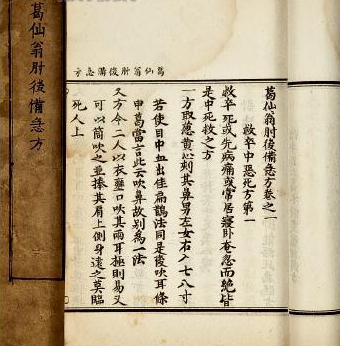 葛仙翁肘後備急方
葛仙翁肘後備急方
葛仙翁肘後備急方卷之一
救卒中惡死方第一
救卒死或先病痛或常居寢卧奄忽而絶皆
是中死救之方
一方取葱黄心刺其鼻男左女右入七八寸
若使目中血出佳扁鵲法同是後吹耳條
中葛當言此云吹鼻故别爲一法
又方令二人以衣壅口吹其兩耳極則易又
可以筒吹之並捧其肩上側身遠之莫臨
死人上